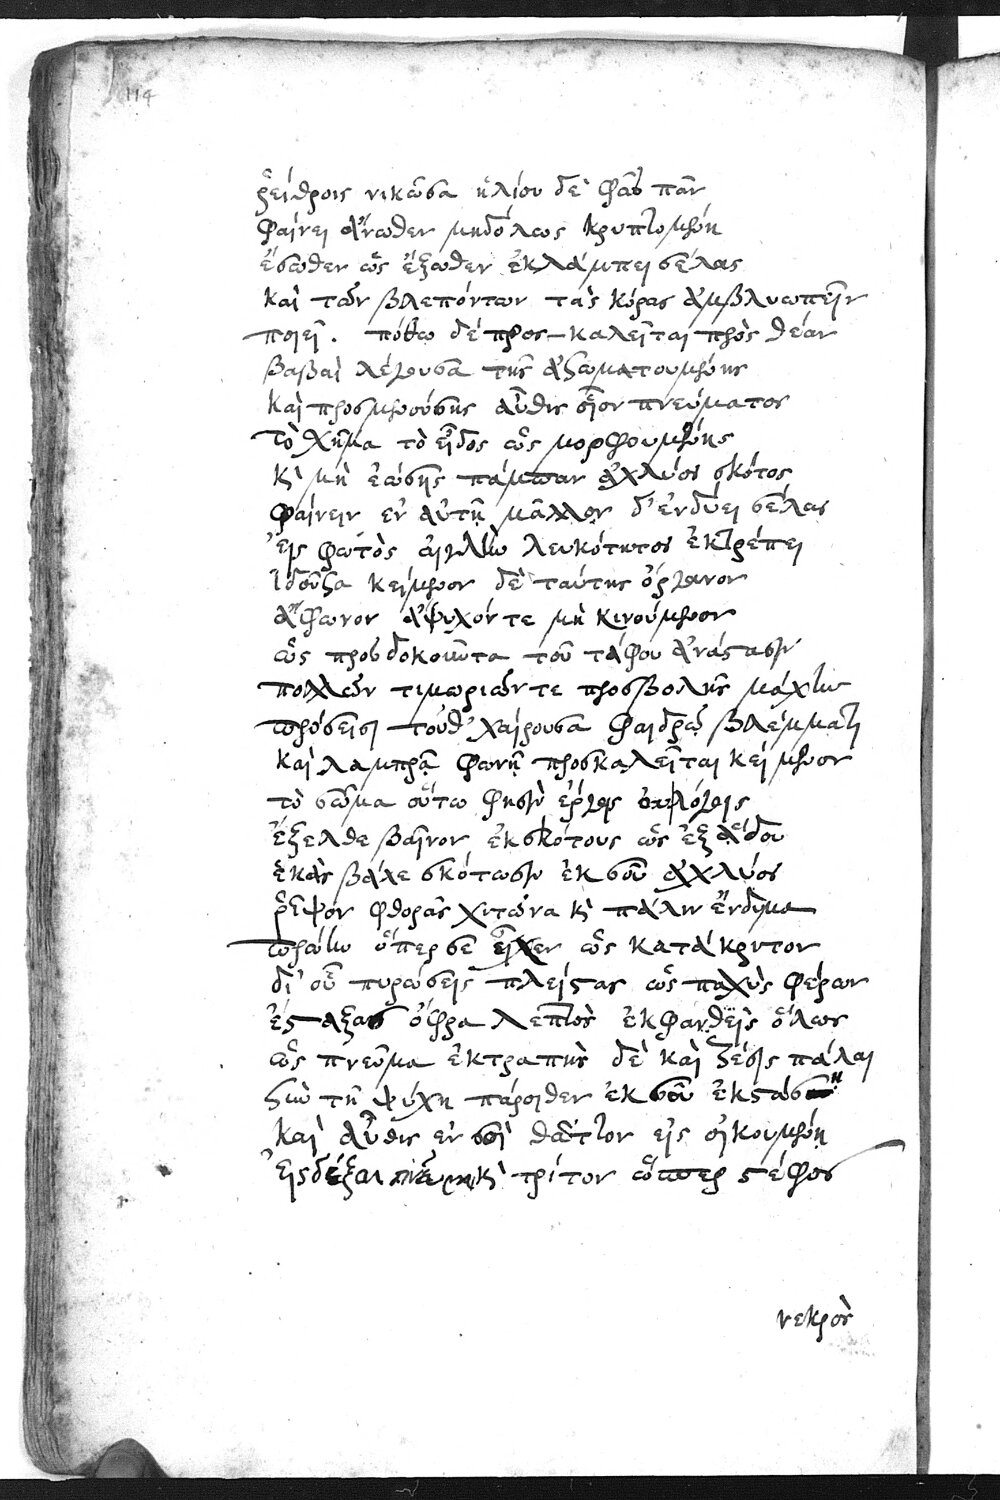 114
ῥείθροις νικῶσα ἡλίου δὲ φῶς πᾶν
φαίνει ἄνωθεν μηδόλως κρυπτομένη
ἔσωθεν ὡς ἔξωθεν ἐκλάμπει σέλας
καὶ τῶν βλεπόντων τὰς κόρας ἀμβλυωπεῖν
ποιεῖ. πόθῳ δὲ προς-καλεῖται πρὸς θέαν
βαβαὶ λέγουσα τῆς ἀσωματουμένης
καὶ προσμενούσης αὖθις οἷον πνεύματος
τὸ χῆμα τὸ εἶδος ὡς μορφουμένης
κὶ μὴ ἐώσης πάμπαν ἀχλύος σκότος
φαίνειν ἐν αὐτῇ μᾶλλον δ' ἐνδύει σέλας
εἰς φωτὸς αἴγλην λευκότητος ἐκτρέπει
ἰδοῦσα κείμενον δὲ ταύτης ὄργανον
ἄφωνον ἄψυχόν τε μὴ κινούμενον
ὡς προσδοκοῦντα τοῦ τάφου ἀνάστασιν
πολλῶν τιμωριῶν τε προσβολῆς μάχην
πρόσεισι τοῦθ' χαίρουσα φαιδρῷ βλέμματι
καὶ λαμπρᾷ φωνῇ προσκαλεῖται κείμενον
τὸ σῶμα οὕτω φησὶν
ἔξελθε βαῖνον ἐκ σκότους ὡς ἐξ ᾅδου
ἑκὰς βάλε σκότωσιν ἐκ σοῦ ἀχλύος
ῥεῖψον φθορᾶς χιτῶνα κὶ πάλιν ἔνδυμα
πρώην ὅπερ σε εἶχεν ὡς κατάκριτον
δι' οὗ πυρώσεις πλείστας ὡς παχὺς φέρων
ἔσταξας ὄφρα λεπτὸς ἐκφανθεὶς ὅλως
ὡς πνεῦμα ἐκτραπῇς δὲ καὶ ζέσις πάλαι
σὺν τῇ ψύχῃ πάροιθεν ἐκ σοῦ
καὶ αὖθις ἐν σοὶ θᾶττον εἰς οἰκουμένη
εἰσδέξαι κὶ τρίτον ὥσπερ στέφος
νεκρὸς